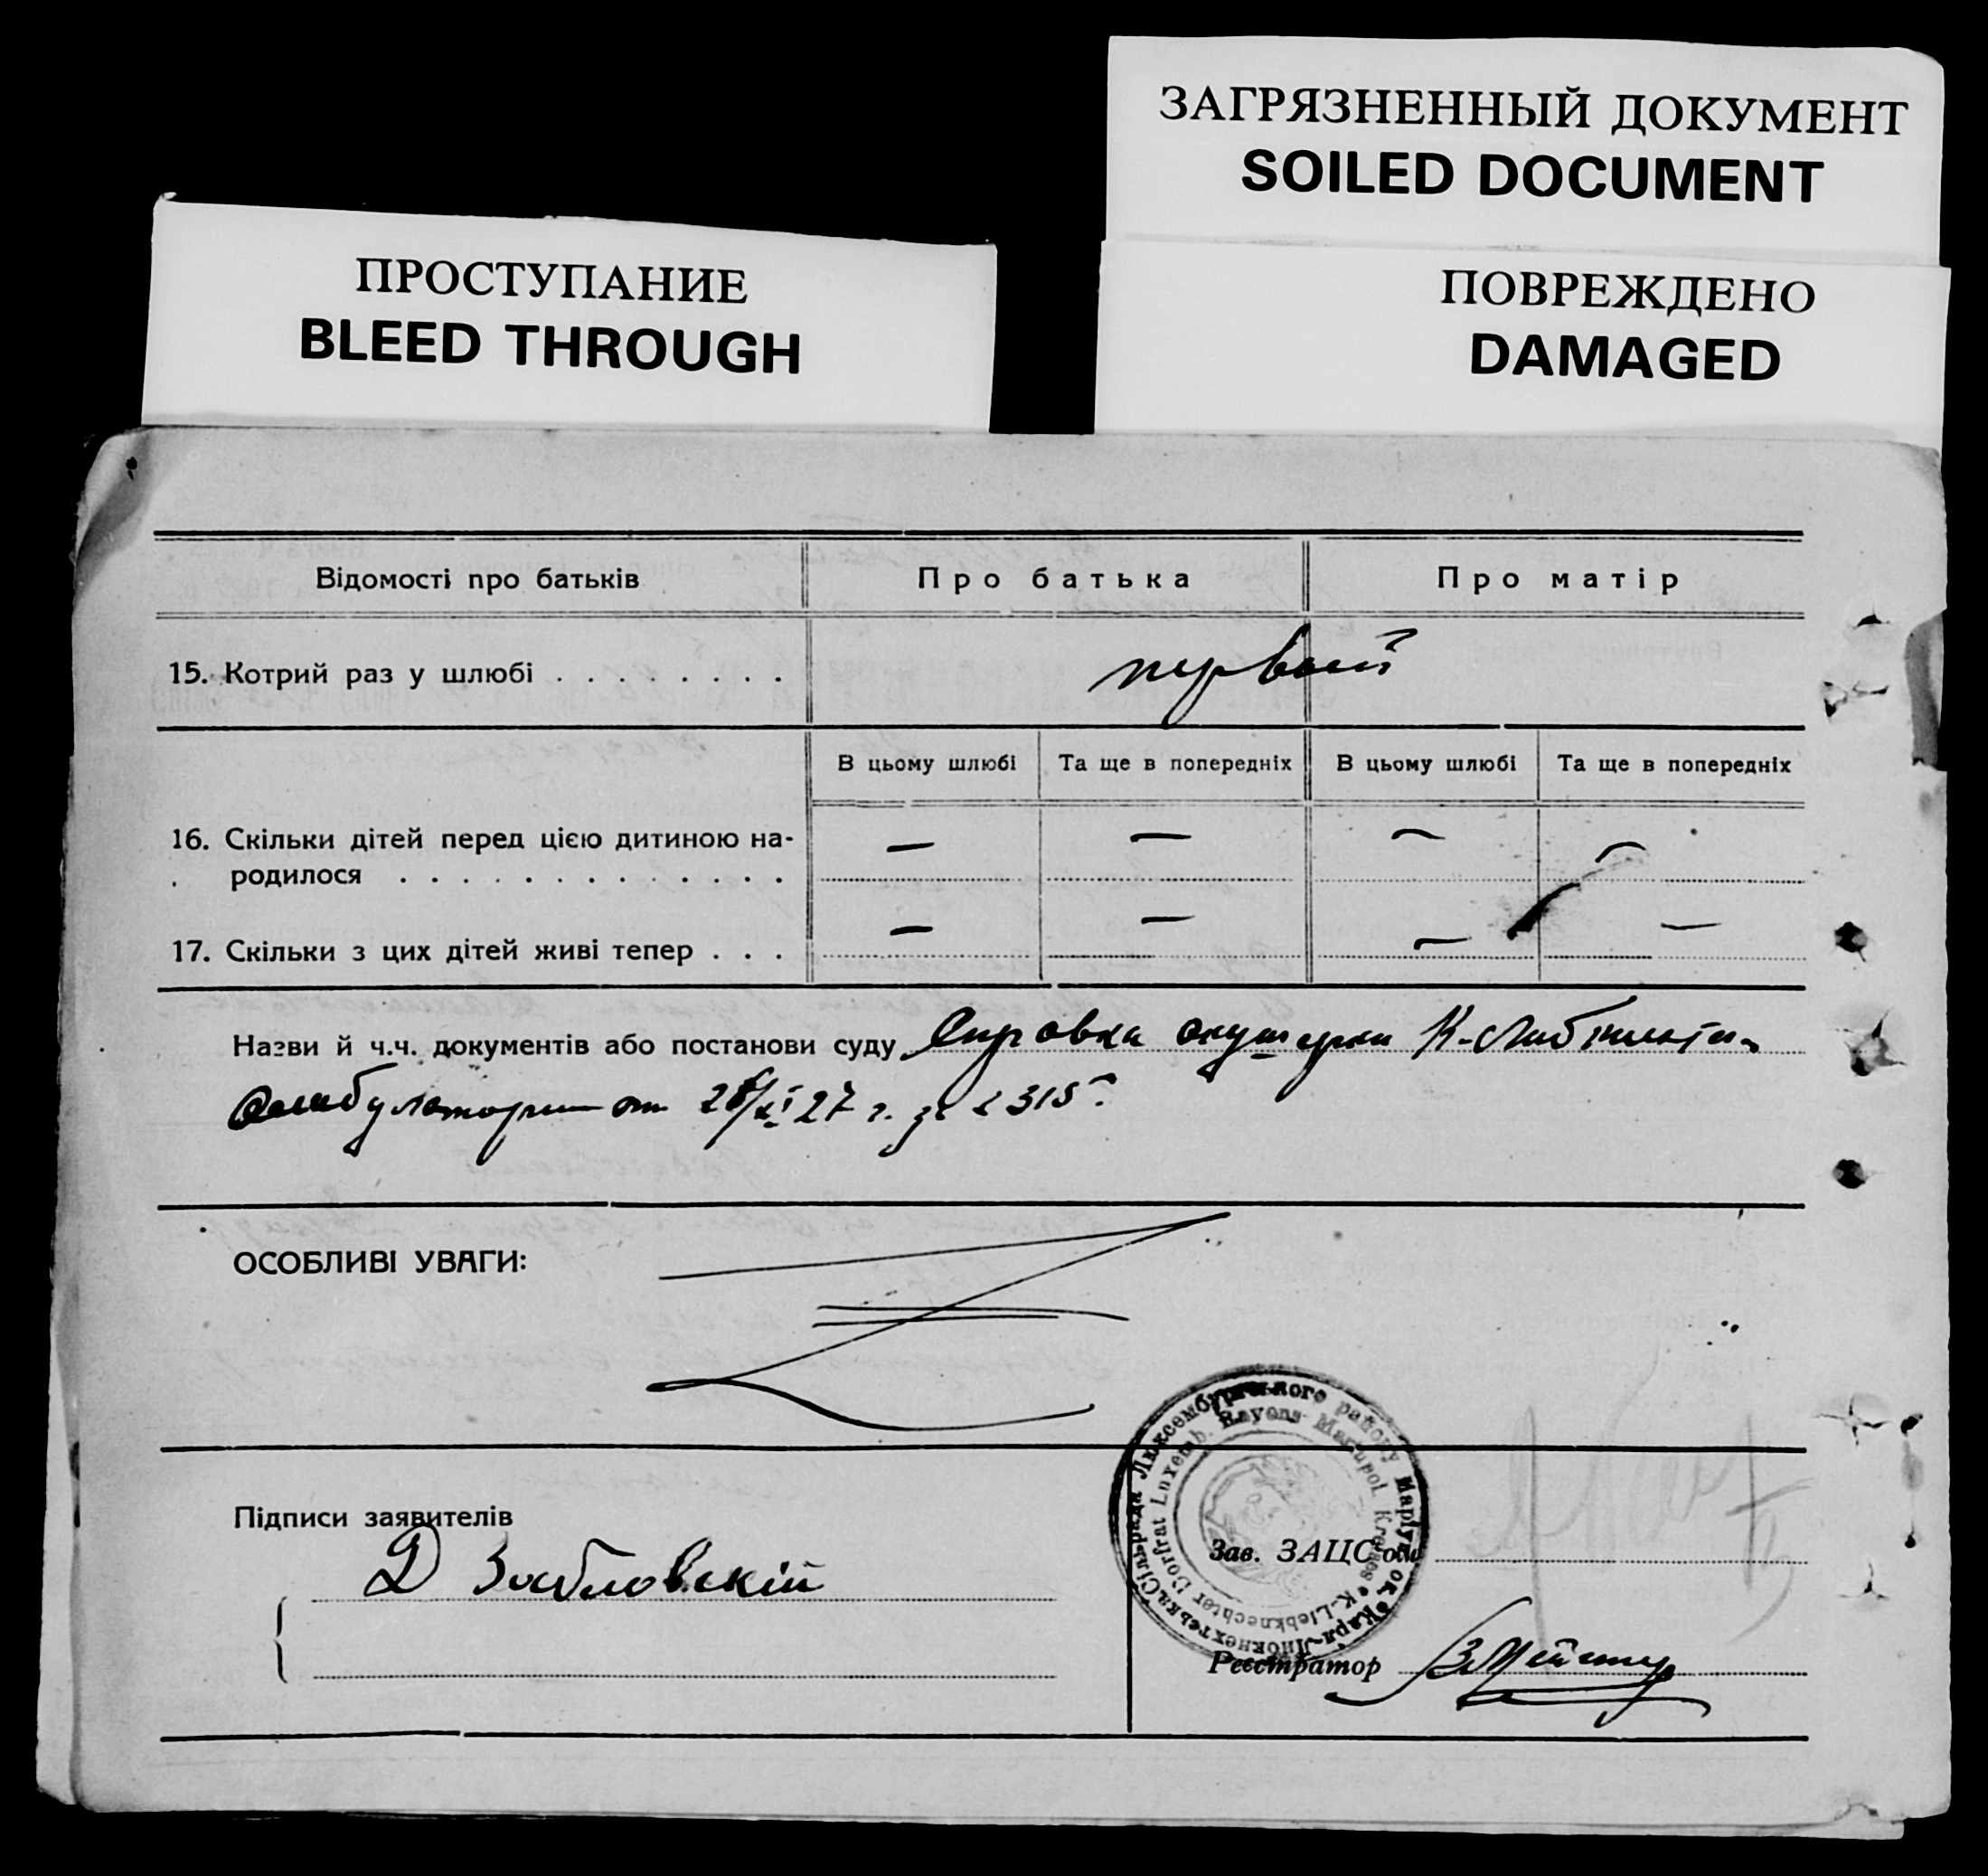 ЗАГРЯЗНЕННЫЙ ДОКУМЕНТ
SOILED DOCUMENT
ПРОСТУПАНИЕ
BLEED THROUGH
ПОВРЕЖДЕНО
DAMAGED
Відомості про батьків Про батька Про матір
15. Котрий раз у шлюбі . . . . . . . . первый
В цьому шлюбі Та ще в попередніх В цьому шлюбі Та ще в попередніх
16. Скільки дітей перед цією дитиною на- — — — —
родилося . . . . . . . . . . . . .
17. Скільки з цих дітей живі тепер . . . — — — —
Назви й ч.ч. документів або постанови суду Справка акушерки К-Либкнехта-
амбулатории от 28/XI 27 г. за № 315.
ОСОБЛИВІ УВАГИ:
Підписи заявителів
Д Забловскій
Сільрада Люксембурзького району Маріуп. ок. Карл-Лібкнехтська
Dorfrat Luxemb. Rayons Mariupol Kreises K-Liebknechter
Зав. ЗАЦС'ом
Реєстратор